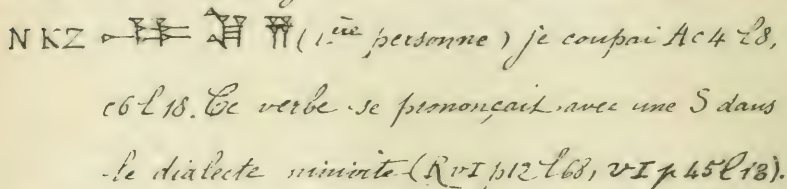 NKZ (1.ère personne) je coupai Ac4 l8,
c6 l18. Ce verbe se prononçait avec une S dans
le dialecte ninivite (R vI p12 l68, vI p 45 l13).